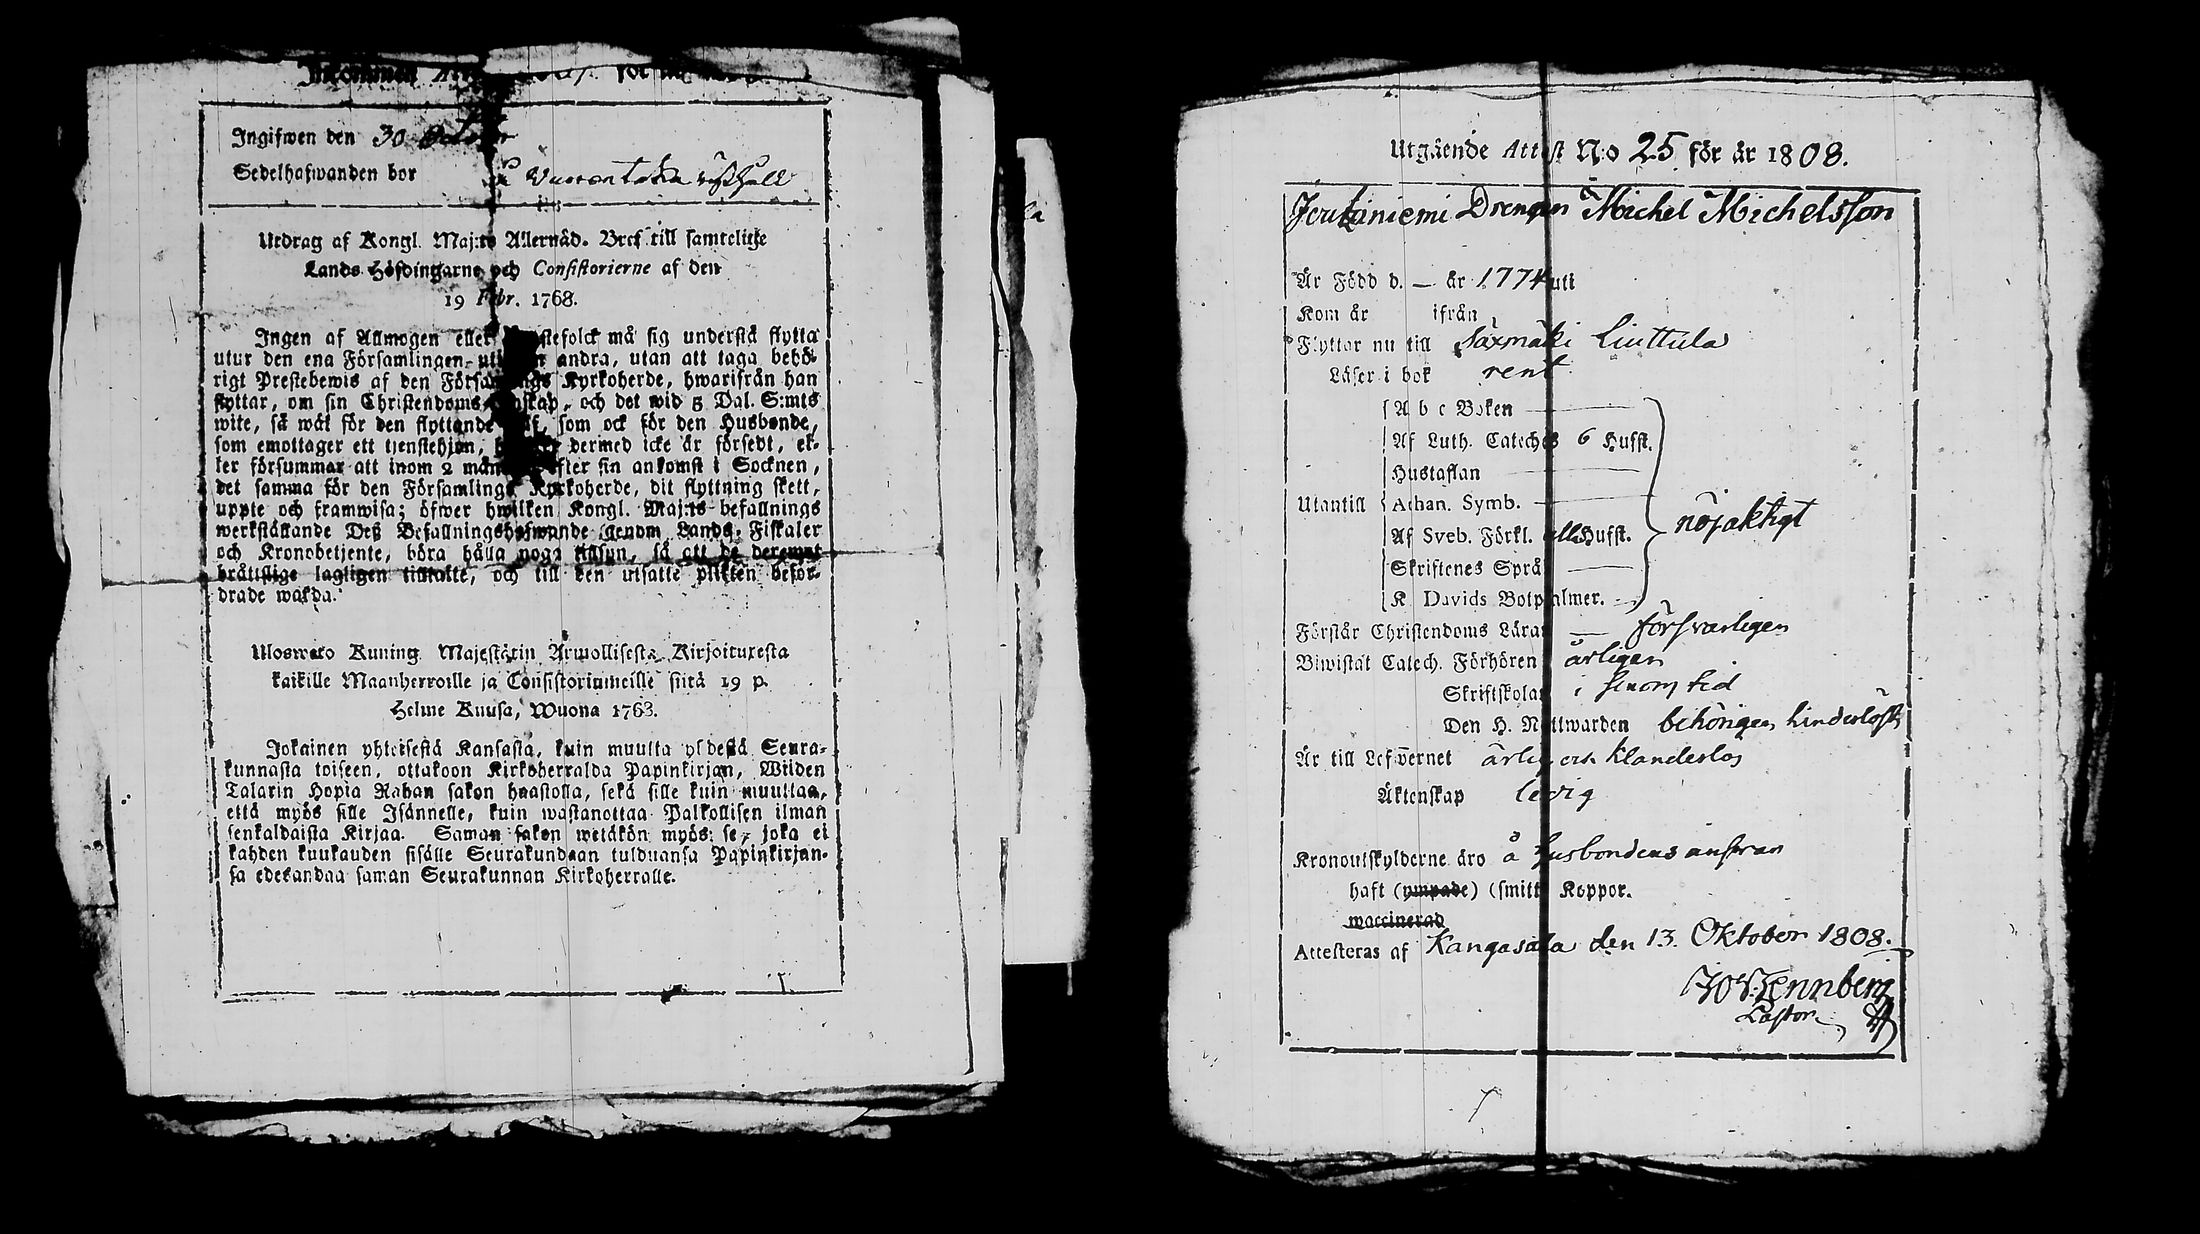 Inkommen för
Ingifwen den 30 October
Sedelhafwanden bor å
Utdrag af Kongl. Maj:ts Allernåd. Bref till samtelige
Lands Höfdingarne och Consistorierne af den
19 Febr. 1768.
Ingen af Allmogen eller må sig understå flytta
utur den ena Församlingen andra, utan att taga behö-
rigt Prestebewis af den Församlings Kyrkoherde, hwarifrån han
flyttar, om sin Christendoms och det wid 5 Dal. S:mts
wite, så wäl för den flyttande som ock för den Husbonde,
som emottager ett tjenstehjon, dermed icke är försedt, el-
ler försummar att inom 2 efter sin ankomst i Socknen,
det samma för den Församlings Kyrkoherde, dit flyttning skett,
uppte och framwisa; öfwer hwilken Kongl. Maj:ts befallnings
werkställande Deß Befallningshafwande genom Lands-Fiskaler
och Kronobetjente, böra hålla noga tillsyn, så att de deremot
bråttslige lagligen tilltalte, och till den utsatte plikten befor-
drade warda.
Ulosweto Kuning. Majestätin Armollisesta Kirjoituxesta
kaikille Maanherroille ja Consistoriumeille siitä 19 p.
Helme Kuusa, Wuona 1768.
Jokainen yhteisestä Kansasta, kuin muutta yhdestä Seura-
kunnasta toiseen, ottakoon Kirkoherralda Papinkirjan, Wiiden
Talarin Hopia Rahan sakon haastolla, sekä sille kuin muuttaa,
että myös sille Isännelle, kuin wastanottaa Palkollisen ilman
senkaldaista Kirjaa. Saman sakon wetäkön myös se, joka ei
kahden kuukauden sisälle Seurakundaan tulduansa Papinkirjan-
sa edesandaa saman Seurakunnan Kirkoherralle.
Utgående Attest N:o 25 för år 1808.
Drengen Michel Michelsson
Är Född d. — år 1774 uti
Kom år ifrån
Flyttar nu till Säxmäki Liuttula
Läser i bok rent
Utantill
A b c Boken
Af Luth. Cateches 6 Hufst.
Hustaflan
Athan. Symb.
Af Sveb. Förkl. alla Hufst.
Skriftenes Språk
K. Davids Botpsalmer.
nöjaktigt
Förstår Christendoms Läran försvarligen
Biwistat Catech. Förhören årligen
Skriftskolan i senom tid
Den H. Nattwarden behörigen, hinderlöst
Är till Lefwernet ärlig och klanderlös
Äktenskap ledig
Kronoutskylderne äro å husbondens ansvar
haft (ympade) (smitt) Koppor.
waccinerad
Attesteras af Kangasala den 13. Oktober 1808.
Lennberg
Pastor